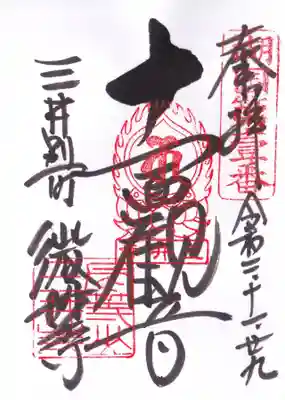 奉拝
令和二・十一・廿九
十一面観音
三井別所
微妙寺